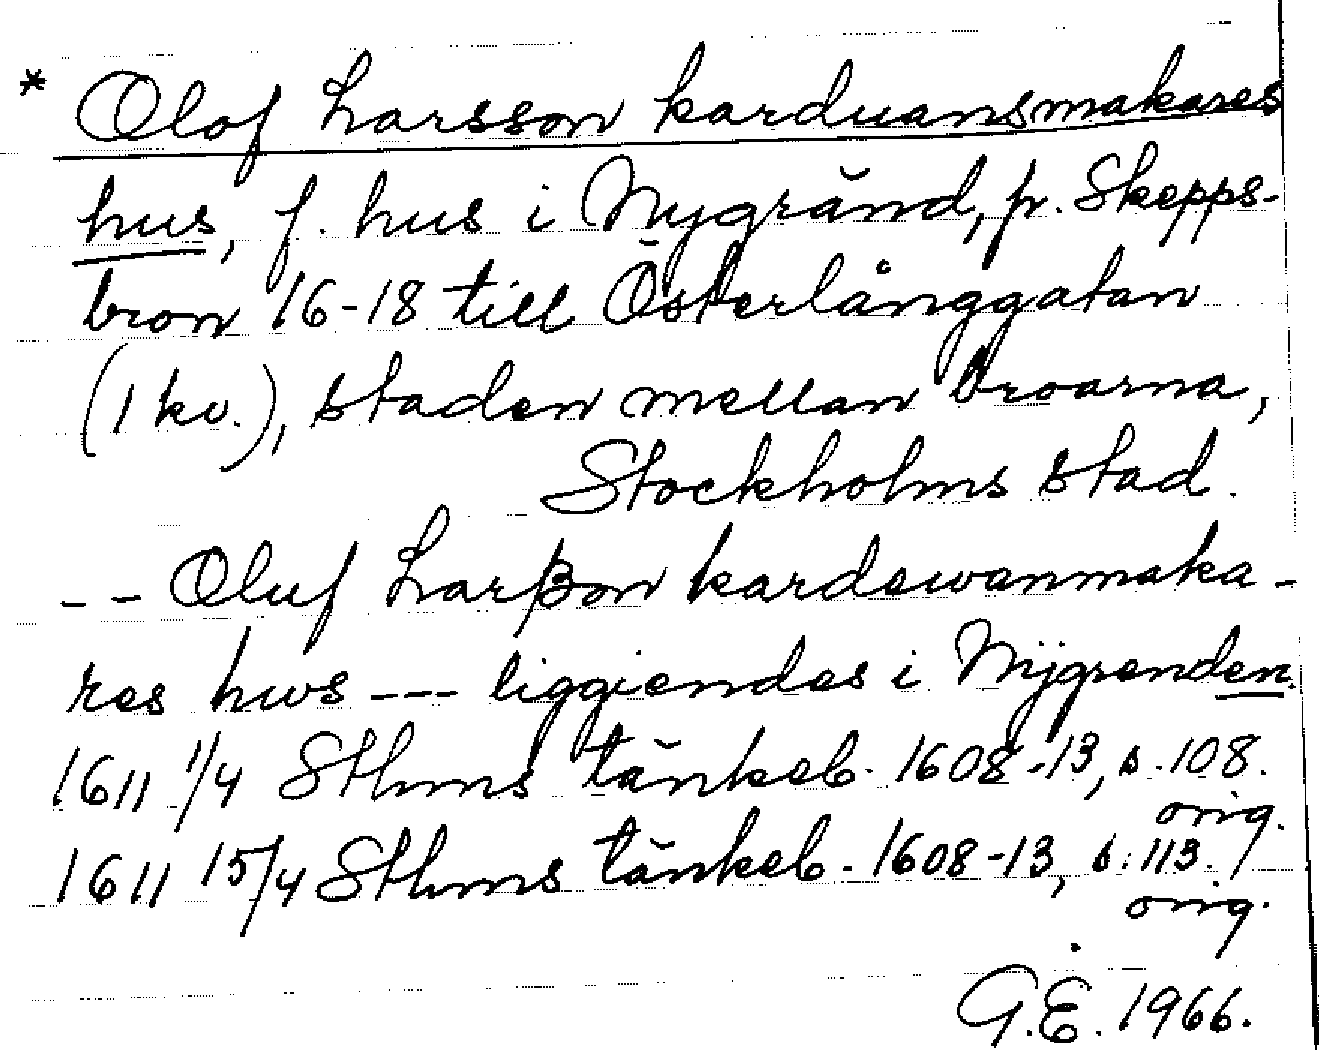 * Olof Larsson karduansmakares
hus, f. hus i Nygränd, fr. Skepps-
bron 16-18 till Österlånggatan
(1 kv.), staden mellan broarna,
Stockholms stad.
-- Oluf Larßon kardewanmaka-
res hws --- liggiendes i Nijgrenden.
1611 1/4 Sthms tänkeb. 1608-13, s. 108.
orig.
1611 15/4 Sthms tänkeb. 1608-13, s. 113.
orig.
G.E. 1966.